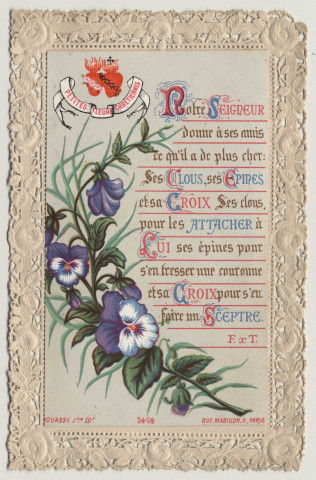 PETITES FLEURS CHRÉTIENNES
Notre SEIGNEUR
donne à ses amis
ce qu'il a de plus cher:
Ses CLOUS, ses EPINES
et sa CROIX Ses clous,
pour les ATTACHER à
LUI ses épines pour
s'en tresser une couronne
et sa CROIX pour s'en
faire un SCEPTRE.
ExT.
OUASSE Jne EDr
RUE MABILLON, PARIS